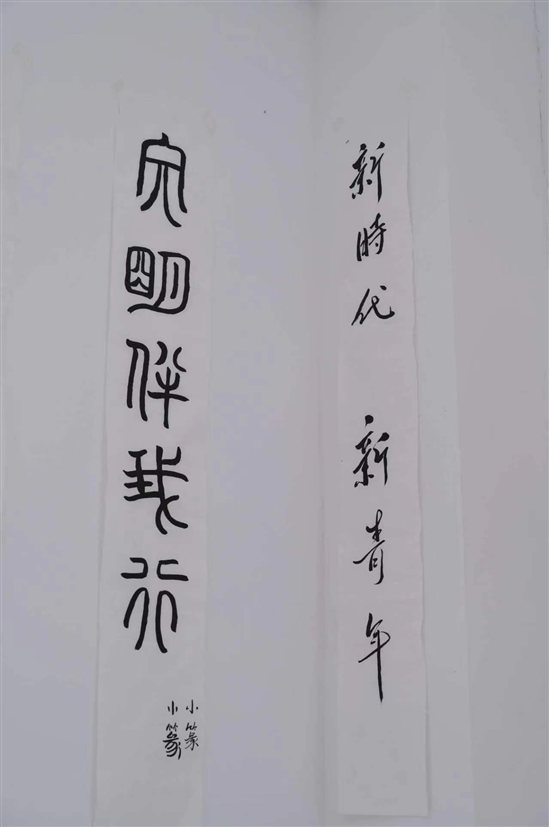 新時代 新青年
文明伴我行
小篆
小篆